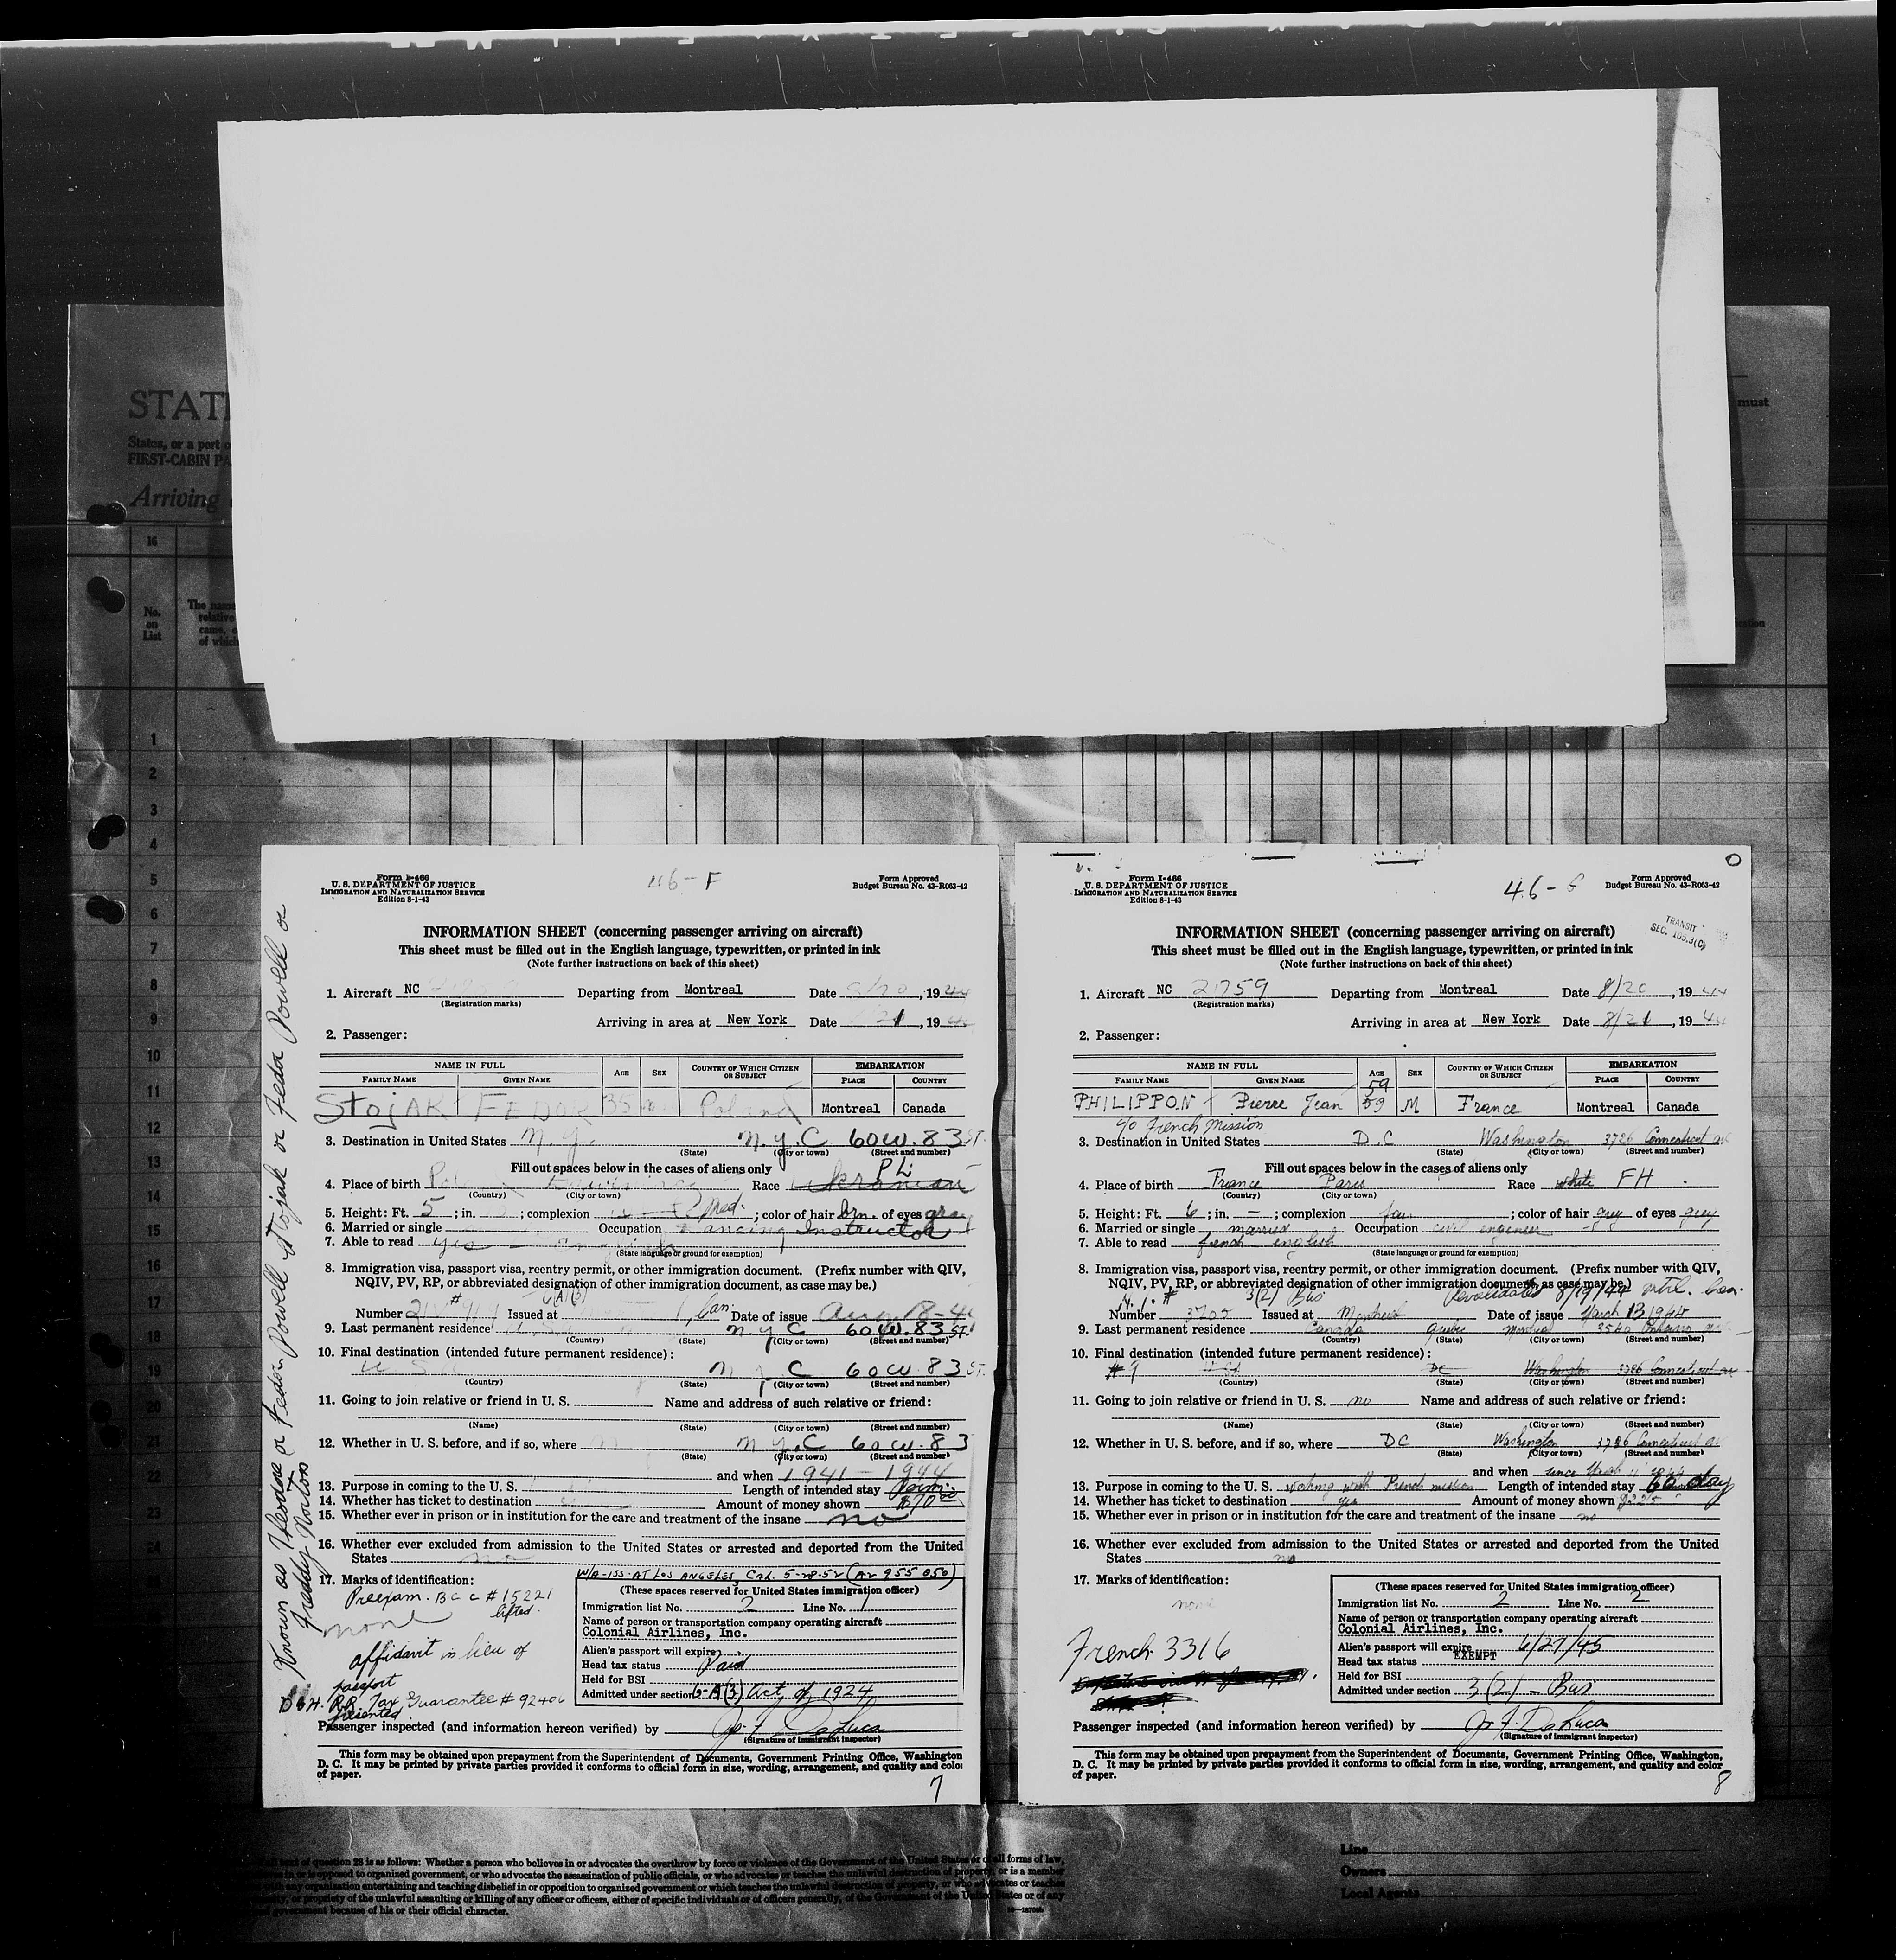 STAT
States, or a port o
FIRST-CABIN PA
Arriving
16
No.
on
List
The name
relative
came, o
of which
must
1
2
3
4
5
6
7
8
9
10
11
12
13
14
15
16
17
18
19
20
21
22
23
24
Known as Theodore or Fedor Powell Stojak or Fedor Powell or
Freddy Norton
Form I-466
U. S. DEPARTMENT OF JUSTICE
IMMIGRATION AND NATURALIZATION SERVICE
Edition 8-1-43
46-F
Form Approved
Budget Bureau No. 43-R063-42
INFORMATION SHEET (concerning passenger arriving on aircraft)
This sheet must be filled out in the English language, typewritten, or printed in ink
(Note further instructions on back of this sheet)
1. Aircraft NC Departing from Montreal Date 8/20, 1944
(Registration marks)
Arriving in area at New York Date 21, 1944
2. Passenger:
NAME IN FULL AGE SEX COUNTRY OF WHICH CITIZEN OR SUBJECT EMBARKATION
FAMILY NAME GIVEN NAME PLACE COUNTRY
StojAK FEDOR 35 m Poland Montreal Canada
3. Destination in United States N.Y. N.Y.C 60 W. 83 ST.
(State) (City or town) (Street and number)
Fill out spaces below in the cases of aliens only
PLi
4. Place of birth Race Ukranian
(Country) (City or town)
5. Height: Ft. 5; in. ; complexion med.; color of hair brn. of eyes gray
6. Married or single Occupation Dancing Instructor
7. Able to read yes - English
(State language or ground for exemption)
8. Immigration visa, passport visa, reentry permit, or other immigration document. (Prefix number with QIV,
NQIV, PV, RP, or abbreviated designation of other immigration document, as case may be.)
Number Issued at Can. Date of issue Aug. 18-44
9. Last permanent residence N Y C 60 W. 83 ST.
(Country) (State) (City or town) (Street and number)
10. Final destination (intended future permanent residence):
U S A N Y C 60 W. 83 ST.
(Country) (State) (City or town) (Street and number)
11. Going to join relative or friend in U. S. Name and address of such relative or friend:
(Name) (State) (City or town) (Street and number)
12. Whether in U. S. before, and if so, where N Y.C 60 W. 83
(State) (City or town) (Street and number)
and when 1941 - 1944
13. Purpose in coming to the U. S. Length of intended stay Perm.
14. Whether has ticket to destination Amount of money shown $70.00
15. Whether ever in prison or in institution for the care and treatment of the insane no
16. Whether ever excluded from admission to the United States or arrested and deported from the United
States no
W/A-ISS-AT LOS ANGELES, CAL. 5-28-52 (AR 955 050)
17. Marks of identification:
Preexam. BCC #15221
lifted.
none
affidavit in lieu of
passport
D&H. R.R. Tax Guarantee # 92406
presented.
(These spaces reserved for United States immigration officer)
Immigration list No. 2 Line No. 1
Name of person or transportation company operating aircraft
Colonial Airlines, Inc.
Alien's passport will expire
Head tax status Paid
Held for BSI
Admitted under section 6-A(3) Act of 1924
Passenger inspected (and information hereon verified) by Jo. F. DeLuca
(Signature of immigrant inspector)
This form may be obtained upon prepayment from the Superintendent of Documents, Government Printing Office, Washington
D. C. It may be printed by private parties provided it conforms to official form in size, wording, arrangement, and quality and color
of paper.
7
Form I-466
U. S. DEPARTMENT OF JUSTICE
IMMIGRATION AND NATURALIZATION SERVICE
Edition 8-1-43
46-G
Form Approved
Budget Bureau No. 43-R063-42
TRANSIT
SEC. 105.3(C)
INFORMATION SHEET (concerning passenger arriving on aircraft)
This sheet must be filled out in the English language, typewritten, or printed in ink
(Note further instructions on back of this sheet)
1. Aircraft NC 21759 Departing from Montreal Date 8/20, 1944
(Registration marks)
Arriving in area at New York Date 8/21, 1944
2. Passenger:
NAME IN FULL AGE SEX COUNTRY OF WHICH CITIZEN OR SUBJECT EMBARKATION
FAMILY NAME GIVEN NAME PLACE COUNTRY
59
PHILIPPON Pierre Jean 59 M France Montreal Canada
c/o French Mission
3. Destination in United States D.C Washington 3726 Connecticut av
(State) (City or town) (Street and number)
Fill out spaces below in the cases of aliens only
4. Place of birth France Paris Race white FH
(Country) (City or town)
5. Height: Ft. 6; in. -; complexion fair; color of hair grey of eyes grey
6. Married or single married Occupation civil engineer
7. Able to read french english
(State language or ground for exemption)
8. Immigration visa, passport visa, reentry permit, or other immigration document. (Prefix number with QIV,
NQIV, PV, RP, or abbreviated designation of other immigration document, as case may be.)
3(2) Bus Revalidated 8/19/44 mtl. Can.
Number 3705 Issued at Montreal Date of issue March 13 1944
9. Last permanent residence Canada Quebec Montreal 3540
(Country) (State) (City or town) (Street and number)
10. Final destination (intended future permanent residence):
#9 DC Washington 3726 Connecticut av
(Country) (State) (City or town) (Street and number)
11. Going to join relative or friend in U. S. no Name and address of such relative or friend:
(Name) (State) (City or town) (Street and number)
12. Whether in U. S. before, and if so, where DC Washington 3726 Connecticut av
(State) (City or town) (Street and number)
and when since
13. Purpose in coming to the U. S. working with French mission Length of intended stay 60 day
14. Whether has ticket to destination yes Amount of money shown
15. Whether ever in prison or in institution for the care and treatment of the insane no
16. Whether ever excluded from admission to the United States or arrested and deported from the United
States no
17. Marks of identification:
none
French 3316
(These spaces reserved for United States immigration officer)
Immigration list No. 2 Line No. 2
Name of person or transportation company operating aircraft
Colonial Airlines, Inc.
Alien's passport will expire 6/27/45
Head tax status EXEMPT
Held for BSI
Admitted under section 3(2) - Bus
Passenger inspected (and information hereon verified) by Jo. F. DeLuca
(Signature of immigrant inspector)
This form may be obtained upon prepayment from the Superintendent of Documents, Government Printing Office, Washington,
D. C. It may be printed by private parties provided it conforms to official form in size, wording, arrangement, and quality and color
of paper.
8
text of question 28 is as follows: Whether a person who believes in or advocates the overthrow by force or violence of the Government of the United States or of all forms of law,
or is opposed to organized government, or who advocates the assassination of public officials, or who advocates or teaches the unlawful destruction of property, or is a member
any organization entertaining and teaching disbelief in or opposition to organized government or which teaches the unlawful destruction of property, or who advocates or teaches
or propriety of the unlawful assaulting or killing of any officer or officers, either of specific individuals or of officers generally, of the Government of the United States or of any
government because of his or their official character.
Line
Owners
Local Agents